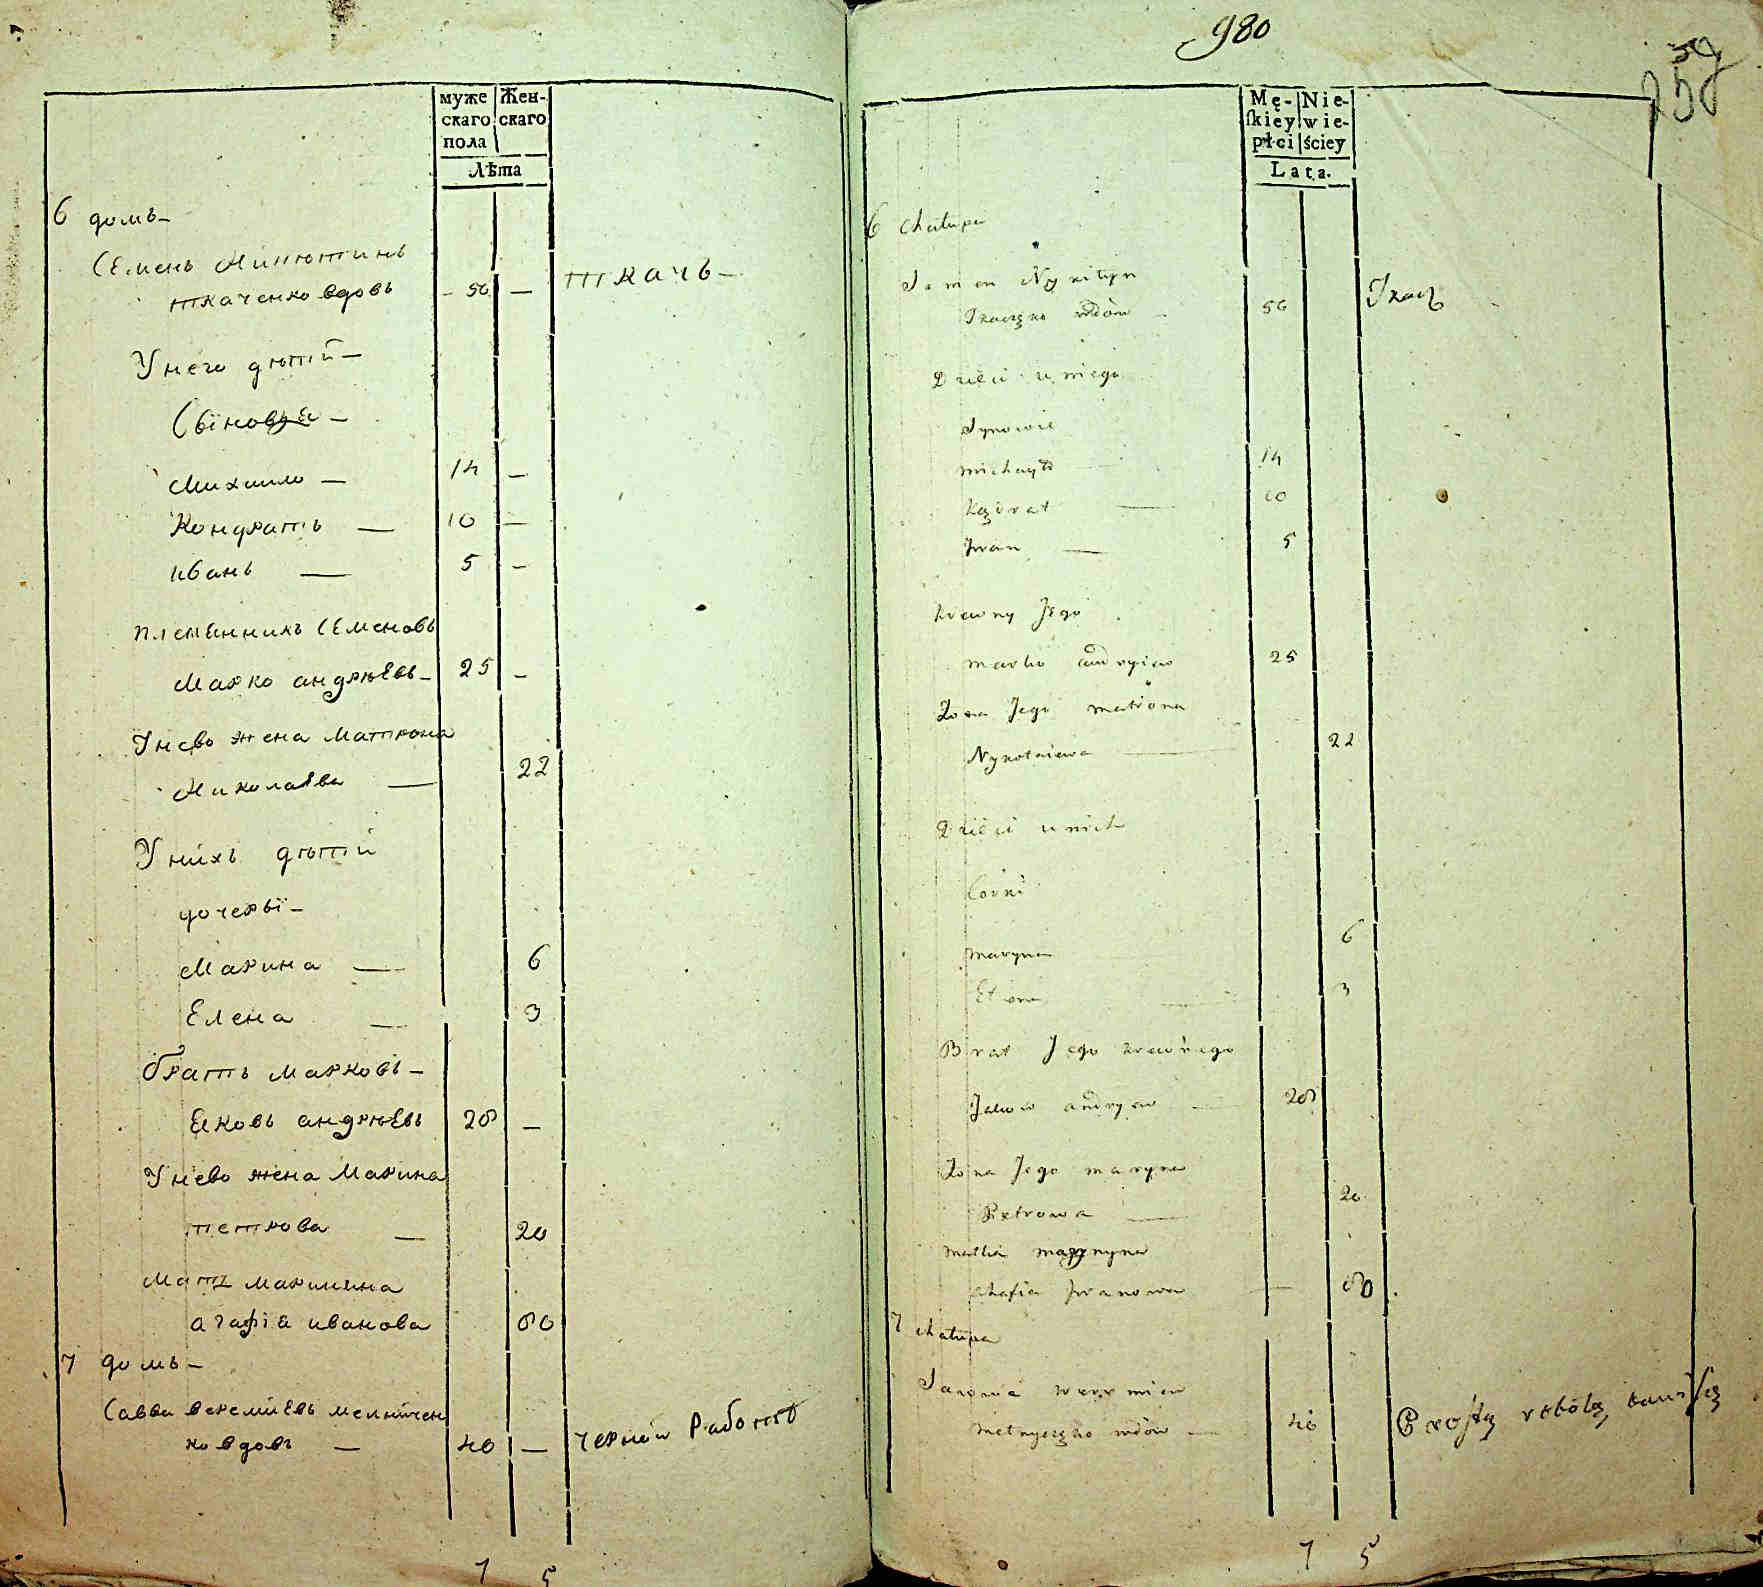 муже Жен-
скаго скаго
пола
Лѣта
6 домъ
Семенъ Микитинъ
ткаченко вдовъ 56 — ткачъ
У него дѣтїй
Сыновья
Михайло 14 —
Кондратъ 10 —
иванъ 5 —
племянникъ Семеновъ
Марко андрѣевъ 25 —
У нево жена Матрона
Николаева 22
У нихъ дѣтїй
дочеры
Марина 6
Елена 3
братъ Марковъ
Яковъ андрѣевъ 28 —
У нево жена Марина
петрова 20
Мать Маринина
агафїя иванова 80
7 домъ
Савва веремиевъ мелничен
ко вдовъ 40 — черной Работы
7 5
980
59
259
Mę- Nie-
ſkiey wie-
płci ściey
Lata.
6 Chałupa
Semen Nykityn
Tkaczko wdów 56 Tkacz
Dzieci u niego
Synowie
Michayło 14
Kondrat 10
Jwan 5
Krewny Jego
Marko andryiew 25
Żona Jego Matrona
Nykołaiewa 22
Dzieci u nich
Corki
Maryna 6
Elena 3
Brat Jego krewnego
Jakow andryew 28
Żona Jego Maryna
Pietrowa 20
Matka Maryny
Ahafia Jwanowa 80
7 chałupa
Sawwa weremiew
Melnyczko wdów 40 Prostą robotą bawi się
7 5